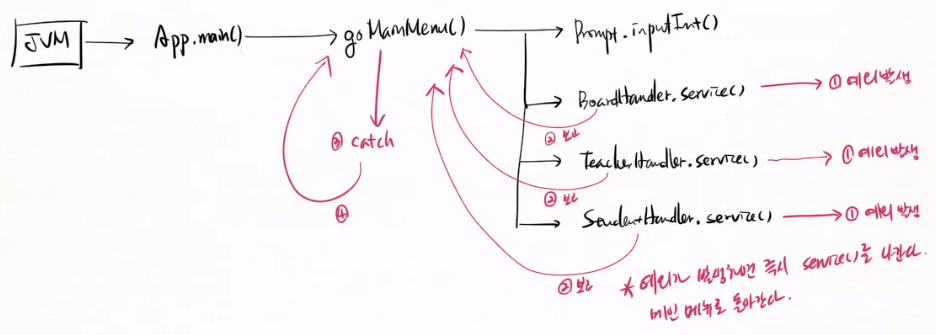 JVM
App.main()
goMainMenu()
Prompt.inputInt()
BoardHandler.service()
① 예외 발생
② 보고
③ catch
TeacherHandler.service()
① 예외 발생
② 보고
④
StudentHandler.service()
① 예외 발생
② 보고
* 예외가 발생하면 즉시 service()를 나간다.
메인 메뉴로 돌아간다.